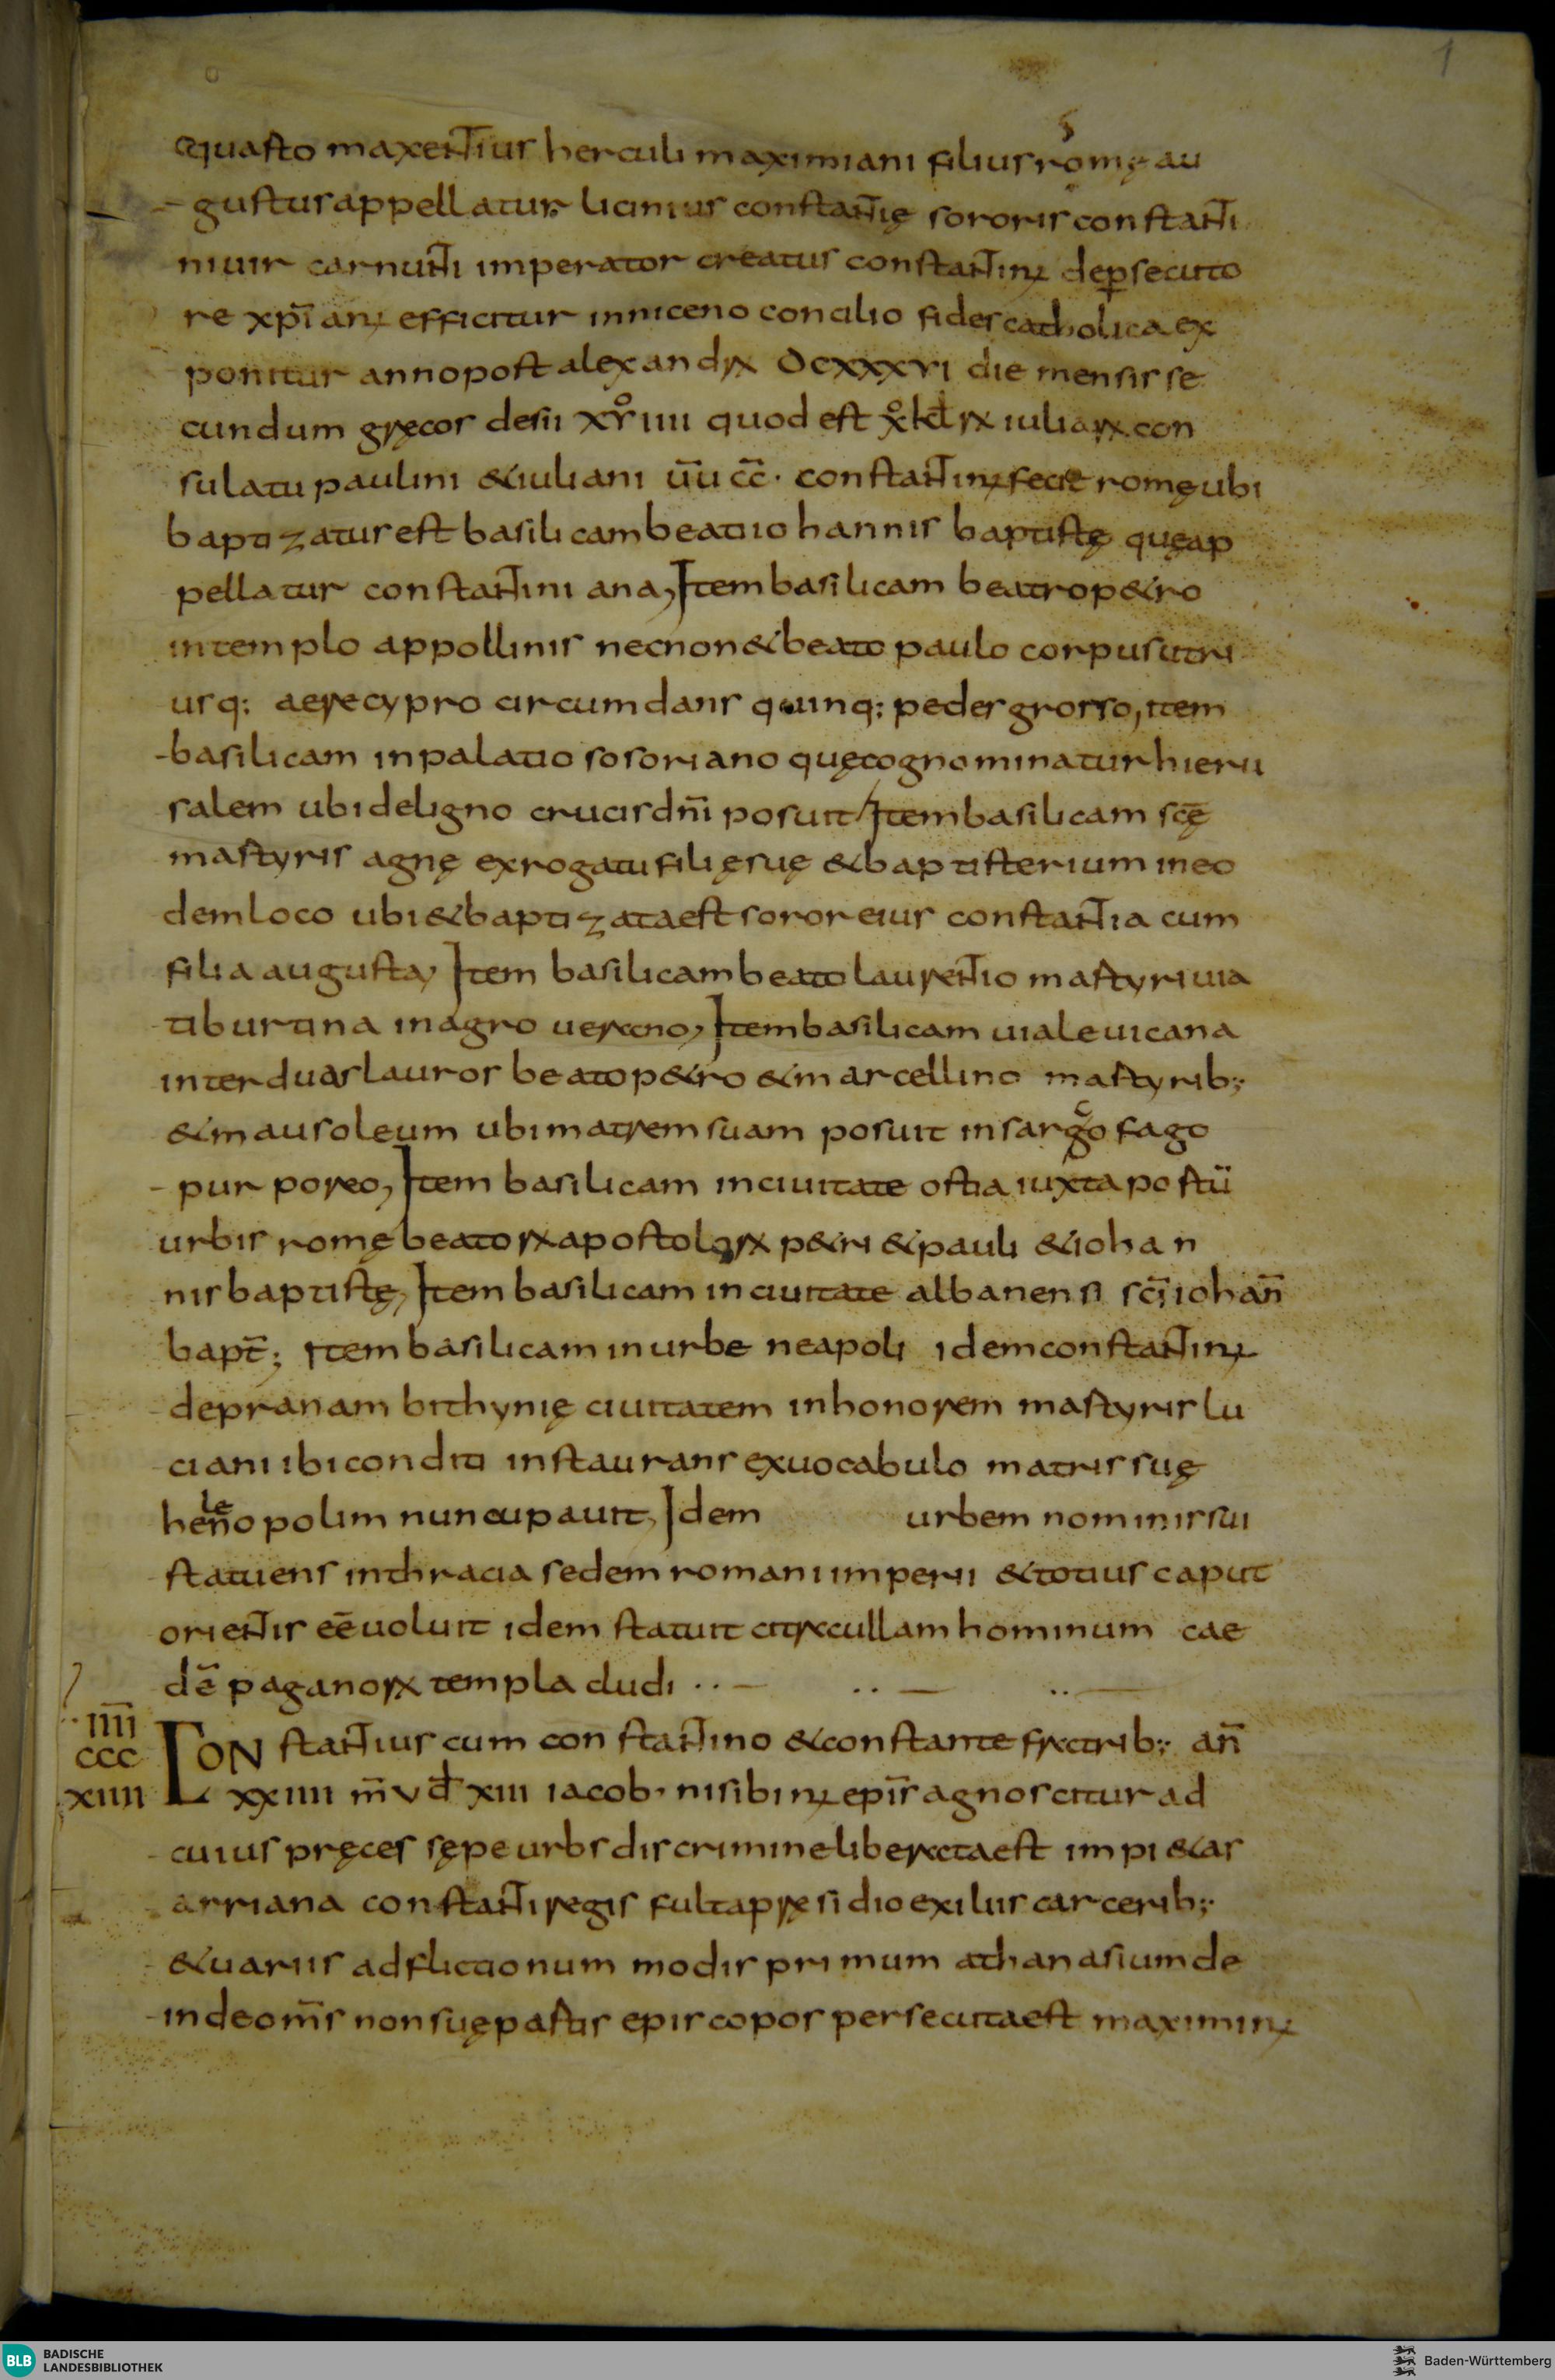 1
quarto maxentius herculi maximiani filius romę au
gustus appellatur licinius constantię sororis constanti
ni uir carnunti imperator creatus constantinus de persecuto
re xp̄ianus efficitur in niceno concilio fides catholica ex
ponitur anno post alexandrū DCXXXVI die mensis se
cundum gręcos desii XVIIII quod est X kłrū iuliarū con
sulatu paulini & iuliani ūu c̄c̄. constantinus fecit romę ubi
baptizatus est basilicam beati iohannis baptistę quę ap
pellatur constantiniana, Item basilicam beatro p&ro
in templo appollinis necnon & beato paulo corpus utri
usq; aere cypro circumdans quinq; pedes grosso, item
basilicam in palatio sosoriano quę cognominatur hieru
salem ubi de ligno crucis dn̄i posuit, Item basilicam sc̄ę
martyris agnę ex rogatu filię suę & baptisterium in eo
dem loco ubi & baptizata est soror eius constantia cum
filia augusta, Item basilicam beato laurentio martyri uia
tiburtina in agro uerano, Item basilicam uia leuicana
inter duas lauros beato p&ro & marcellino martyrib;
& mausoleum ubi matrem suam posuit in sargofago
purporeo, Item basilicam in ciuitate ostia iuxta portū
urbis romę beatorū apostolorū p&ri & pauli & iohan
nis baptistę, Item basilicam in ciuitate albanensi sc̄i iohan̄
bapt̄; Item basilicam in urbe neapoli idem constantinus
depranam bithynię ciuitatem in honorem martyris lu
ciani ibi conditi instaurans ex uocabulo matris suę
helenopolim nuncupauit, Idem urbem nominis sui
statuens in thracia sedem romani imperii & totius caput
orientis eē uoluit idem statuit citra ullam hominum cae
dē paganorū templa cludi
IIII
CCC
XIIII
CONstantius cum constantino & constante fratrib; an̄
XXIIII m̄ V d̄ XIII iacob, nisibinus epīs agnoscitur ad
cuius pręces sępe urbs discrimine liberata est impi&as
arriana constanti regis fulta pręsidio exiliis carcerib;
& uariis adflictionum modis primum athanasium de
inde om̄s non suę partis episcopos persecuta est maximinus
BLB BADISCHE
LANDESBIBLIOTHEK
Baden-Württemberg